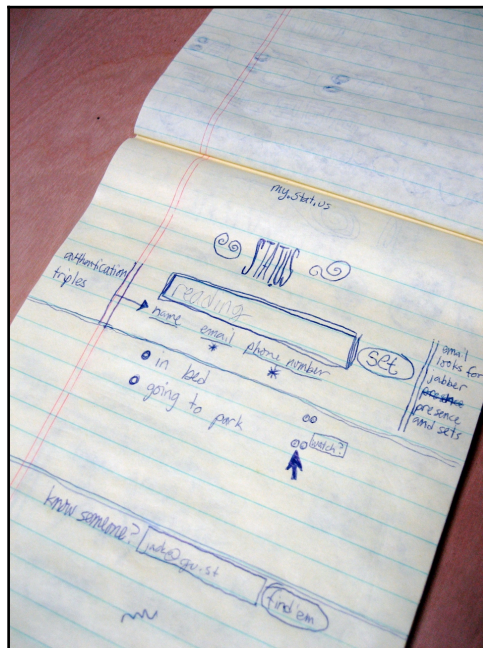 my.stat.us
STAT.US
reading
set
authentication
triples
name
email
phone number
*
*
email
looks for
jabber
presence
presence
and sets
in bed
going to park
watch?
know someone?
jack@gu.st
find 'em